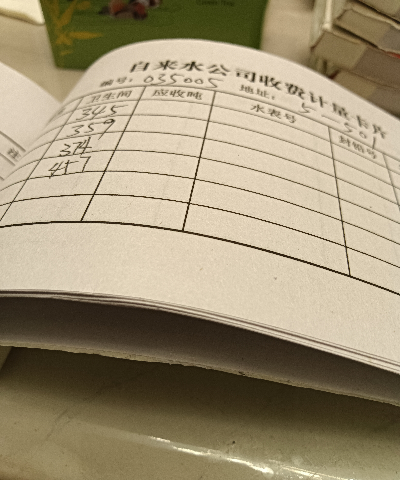 自来水公司收费计量卡片
编号: 035005 地址: 5-501
卫生间 应收吨 水表号 封铅号
345
359
374
457